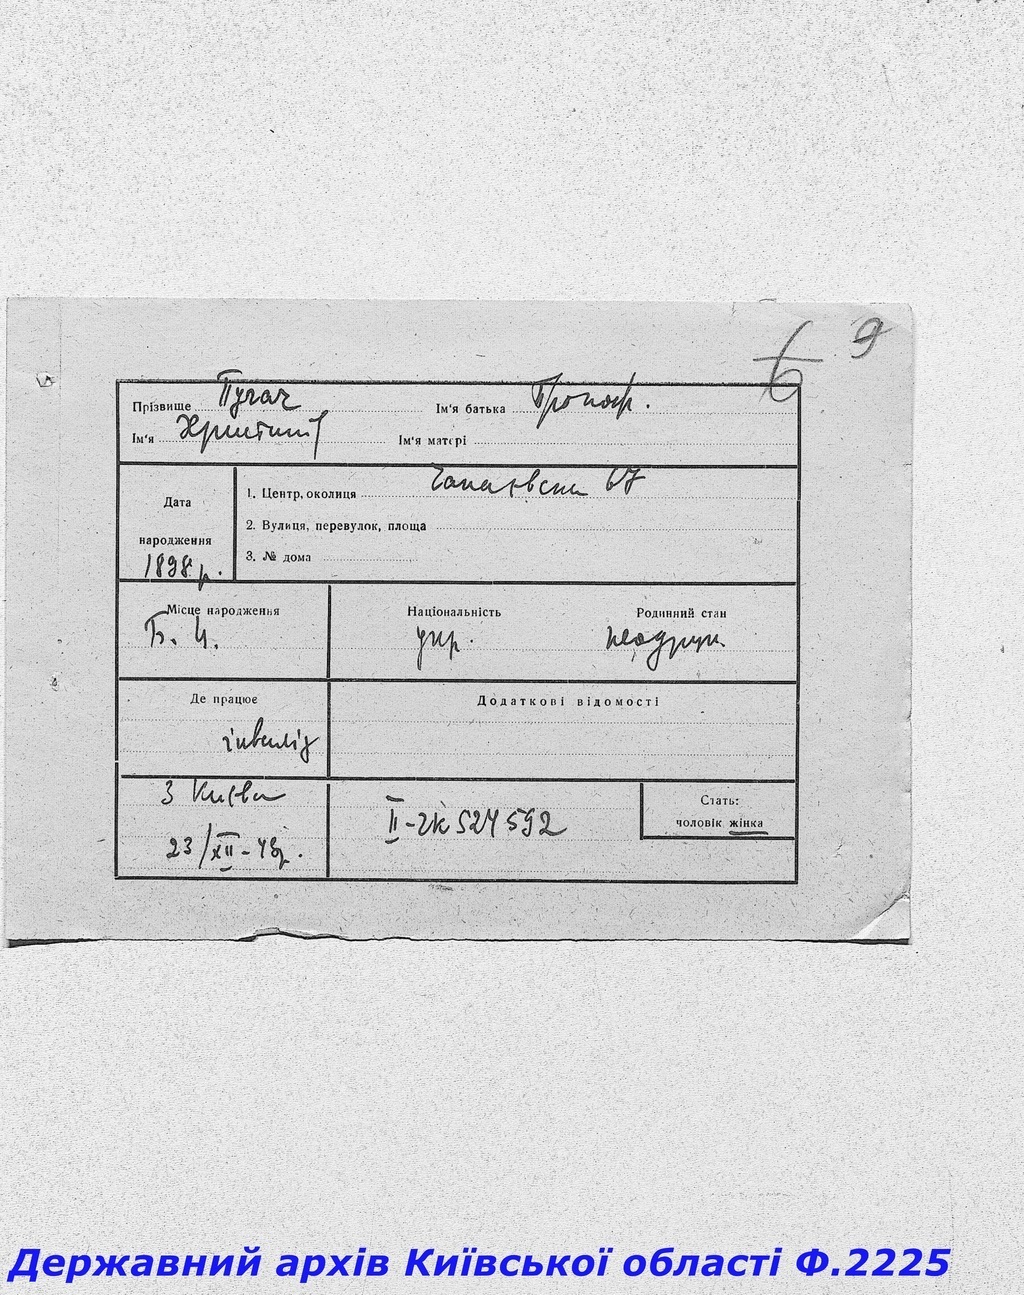 6 9
Прізвище Пугач Ім'я батька Проноф.
Ім'я Христина Ім'я матері
Дата народження 1898 р.
1. Центр, околиця 67
2. Вулиця, перевулок, площа
3. № дома
Місце народження Національність Родинний стан
Б. Ц. укр. неодруж.
Де працює Додаткові відомості
інвалід
З Києва
23/XII-43р.
II-ЧК 524592
Стать:
чоловік жінка
Державний архів Київської області Ф.2225